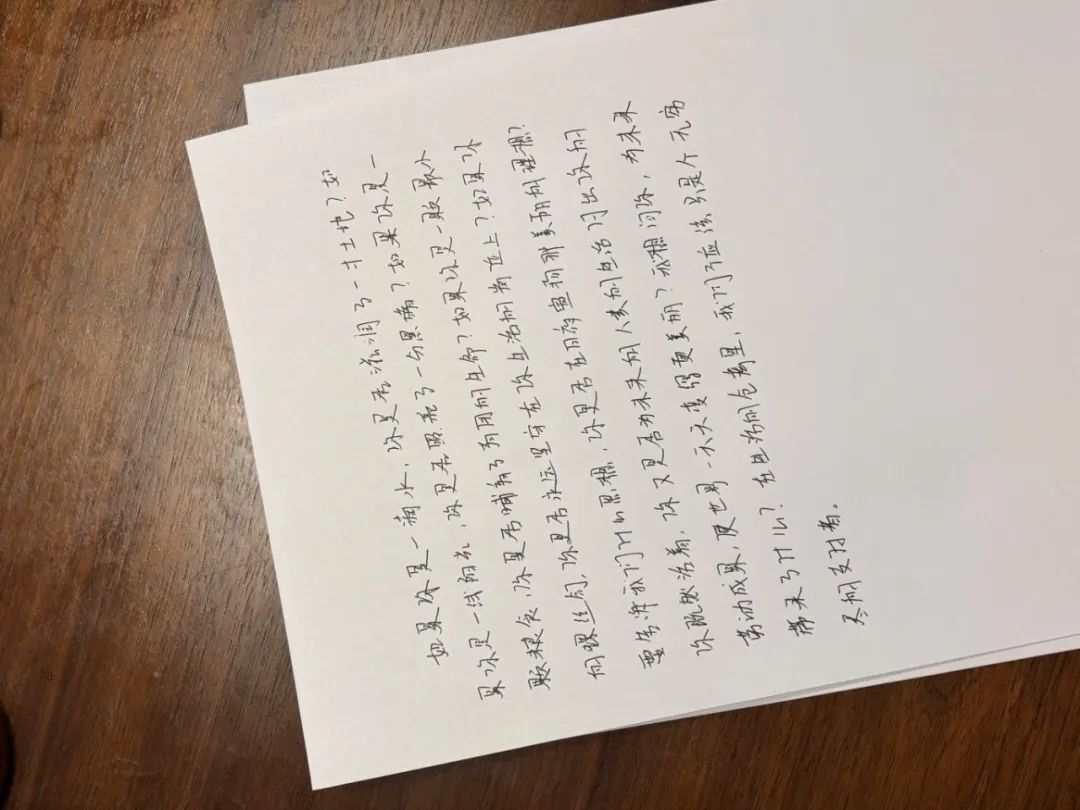 如果你是一滴水，你是否滋润了一寸土地？如
果你是一线阳光，你是否照亮了一分黑暗？如果你是一
颗粮食，你是否哺育了有用的生命？如果你是一颗最小
的螺丝钉，你是否永远坚守在你生活的岗位上？如果你
要告诉我们什么思想，你是否在日夜宣扬那美丽的理想？
你既然活着，你又是否为未来的人类的生活付出你的
劳动成果，使世界一天天变得更美丽？我想问你，为未来
带来了什么？在生活的仓库里，我们不应该只是个无穷
尽的支付者。